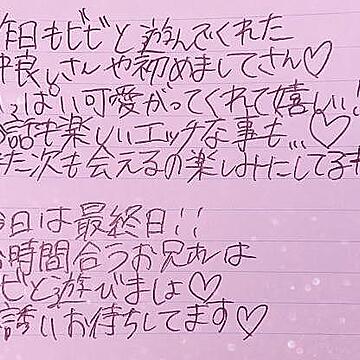 昨日もビビと遊んでくれた
仲良しさんや初めましてさん♡
いっぱい可愛がってくれて嬉しい!
お話も楽しいエッチな事も...♡
また次も会えるの楽しみにしてるね
今日は最終日!!
お時間合うお兄さんは
ビビと遊びましょ♡
お誘いお待ちしてます♡